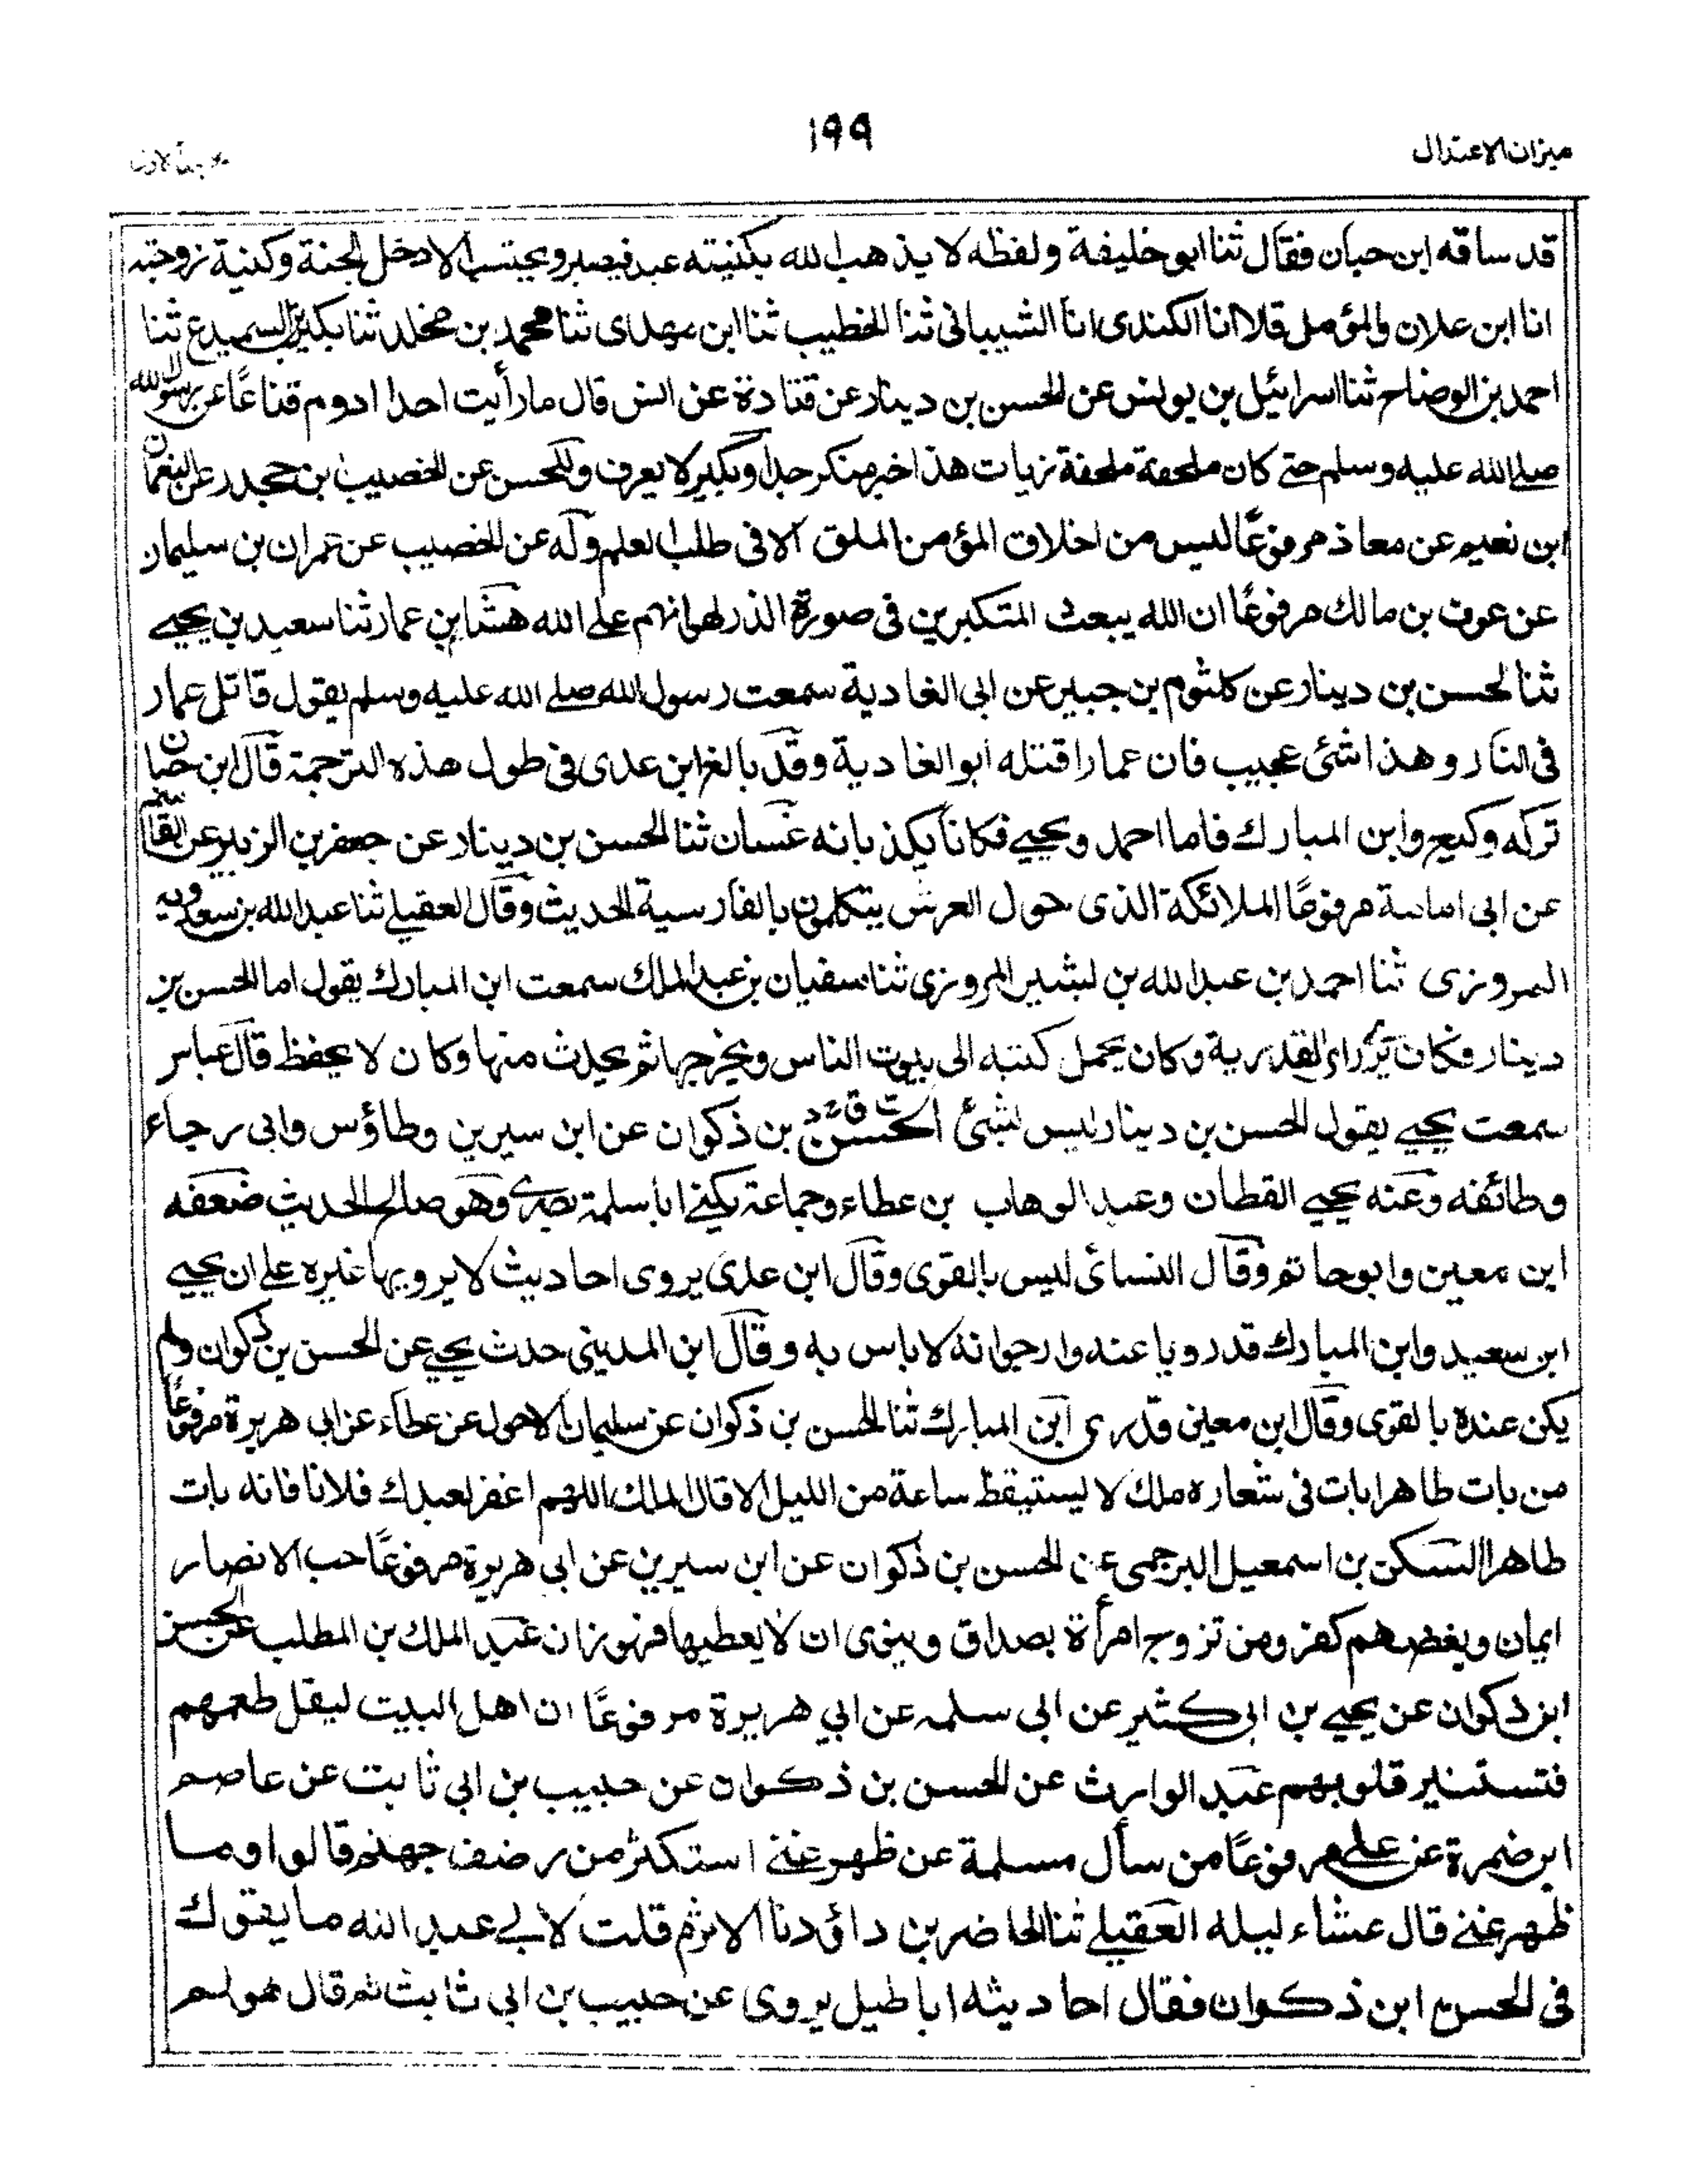 ١٩٩
ميزان الاعتدال
قد ساقه ابن حبان فقال ثنا ابو خليفة ولفظه لا يذهب الله بكنيته عبد فيصبر ويحتسب الا دخل الجنة وكنية زوجته
انا ابن علان والمؤمل قالا انا الكندى انا الشيبانى ثنا الخطيب ثنا ابن مهدى ثنا محمد بن مخلد ثنا بكير بن السميدع ثنا
احمد بن الوضاح ثنا اسرائيل بن يونس عن الحسن بن دينار عن قتادة عن انس قال ما رأيت احدا ادوم قناعًا عن رسول الله
صلى الله عليه وسلم حتى كان ملحفة ملحفة زيات هذا خبر منكر جدا وبكير لا يعرف وللحسن عن الخصيب بن جحدر عن النعمان
ابن نعيم عن معاذ مرفوعًا ليس من اخلاق المؤمن الملق الا فى طلب العلم وله عن الخصيب عن عمران بن سليمان
عن عوف بن مالك مرفوعًا ان الله يبعث المتكبرين فى صورة الذر لهوانهم على الله هشام بن عمار ثنا سعيد بن يحيى
ثنا الحسن بن دينار عن كلثوم بن جبير عن ابى الغادية سمعت رسول الله صلى الله عليه وسلم يقول قاتل عمار
فى النار وهذا شئ عجيب فان عمارا قتله ابو الغادية وقد بالغ ابن عدى فى طول هذه الترجمة قال ابن حبان
تركه وكيع وابن المبارك فاما احمد ويحيى فكانا يكذبانه غسان ثنا الحسن بن دينار عن جعفر بن الزبير عن القاسم
عن ابى امامة مرفوعًا الملائكة الذى حول العرش يتكلمون بالفارسية الحديث وقال العقيلى ثنا عبد الله بن سعدويه
المروزى ثنا احمد بن عبد الله بن بشير المروزى ثنا سفيان بن عبد الملك سمعت ابن المبارك يقول اما الحسن بن
دينار فكان يرى راى القدرية وكان يحمل كتبه الى بيوت الناس ويخرجها ثم يحدث منها وكان لا يحفظ قال عباس
سمعت يحيى يقول الحسن بن دينار ليس بشئ الحسن بن ذكوان عن ابن سيرين وطاؤس وابى رجاء
وطائفه وعنه يحيى القطان وعبد الوهاب بن عطاء وجماعة يكنى ابا سلمة بصرى وهو صالح الحديث ضعفه
ابن معين وابو حاتم وقال النسائى ليس بالقوى وقال ابن عدى يروى احاديث لا يرويها غيره على ان يحيى
ابن سعيد وابن المبارك قد رويا عنه وارجوا نه لا باس به وقال ابن المدينى حدث يحيى عن الحسن بن ذكوان ولم
يكن عنده بالقوى وقال ابن معين قدرى ابن المبارك ثنا الحسن بن ذكوان عن سليمان الاحول عن عطاء عن ابى هريرة مرفوعًا
من بات طاهرا بات فى شعاره ملك لا يستيقظ ساعة من الليل الا قال الملك اللهم اغفر لعبدك فلانا فانه بات
طاهرا السكن بن اسمعيل البرجمى عن الحسن بن ذكوان عن ابن سيرين عن ابى هريرة مرفوعًا حب الانصار
ايمان وبغضهم كفر ومن تزوج امرأة بصداق وينوى ان لا يعطيها فهو زان عبد الملك بن المطلب عن الحسن
ابن ذكوان عن يحيى بن ابى كثير عن ابى سلمه عن ابي هريرة مرفوعًا ان اهل البيت ليقل طعمهم
فتستنير قلوبهم عبد الوارث عن الحسن بن ذكوان عن حبيب بن ابي ثابت عن عاصم
ابن ضمرة عن علي مرفوعًا من سأل مسلمة عن ظهر غنى استكثر من رضف جهنم قالوا وما
ظهر غنى قال عشاء ليله العقيلى ثنا الحاضر بن داؤد نا الاثرم قلت لابي عبد الله ما يقوك
فى الحسن ابن ذكوان فقال احاديثه اباطيل يروى عن حبيب بن ابي ثابت ثم قال هو لم